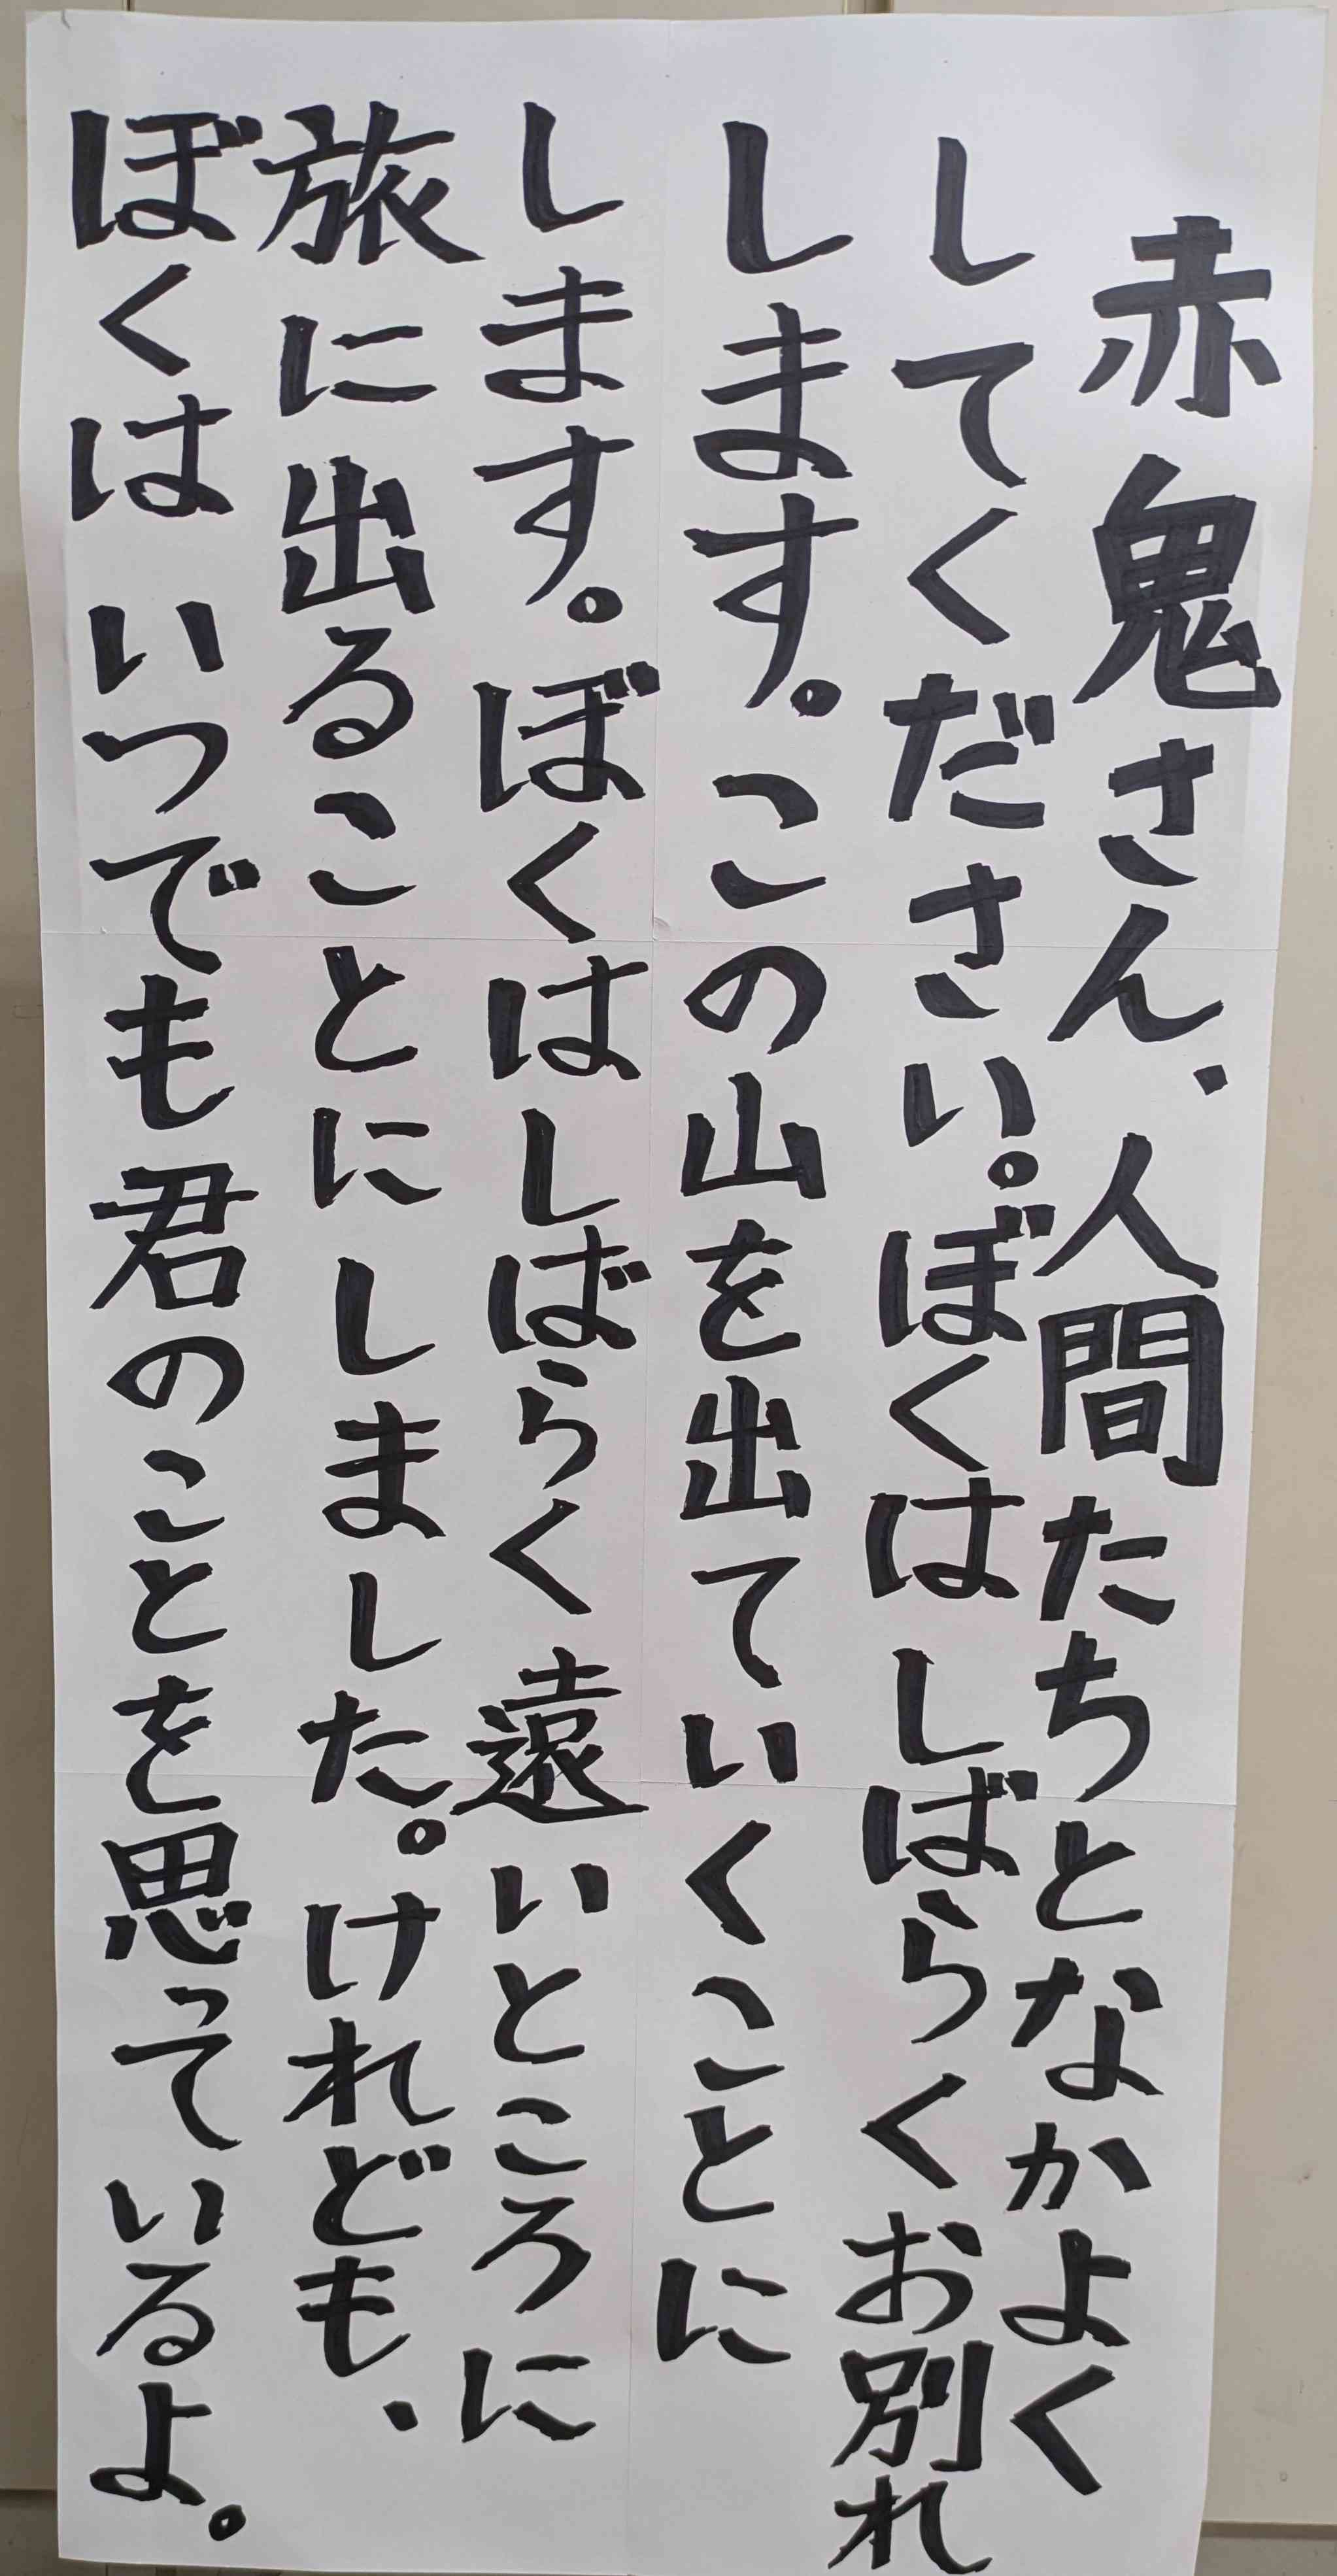 赤鬼さん、人間たちとなかよく
してください。ぼくはしばらくお別れ
します。この山を出ていくことに
します。ぼくはしばらく遠いところに
旅に出ることにしました。けれども、
ぼくはいつでも君のことを思っているよ。